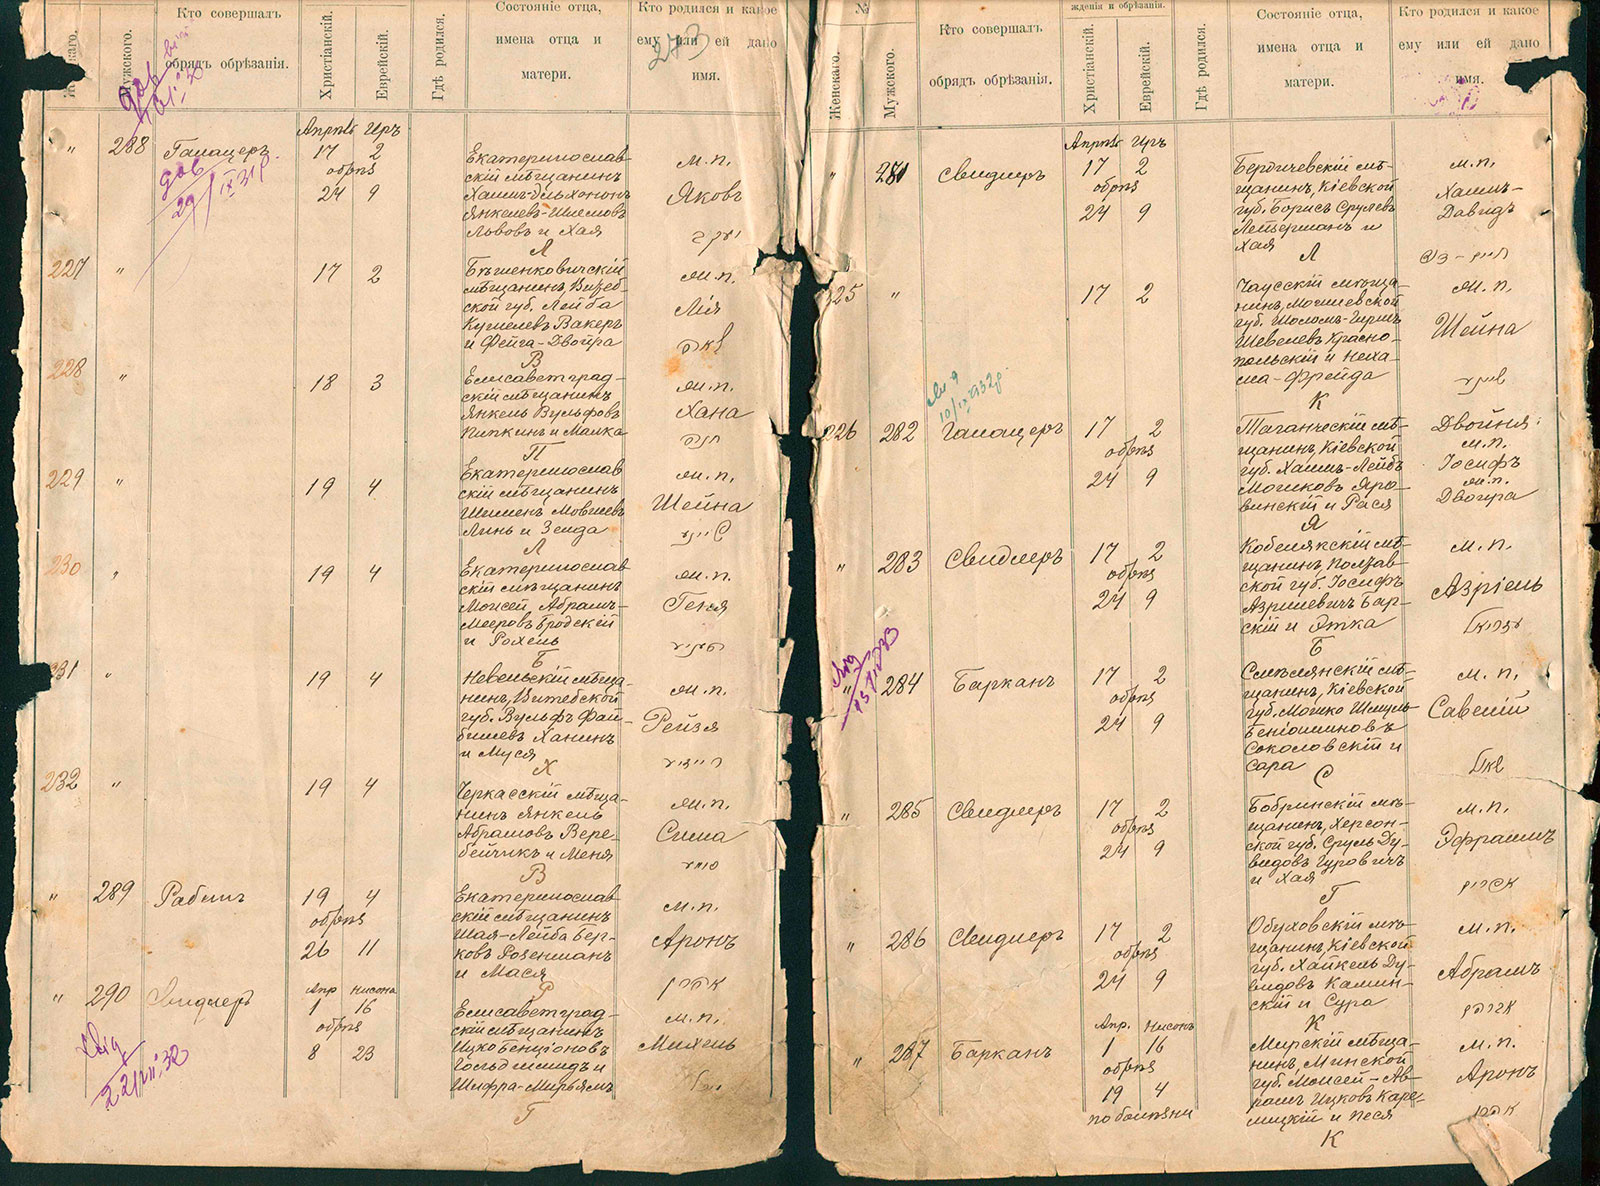 Женскаго.
Мужскаго.
Кто совершалъ
обрядъ обрѣзанія.
Христіанскій.
Еврейскій.
Гдѣ родился.
Состояніе отца,
имена отца и
матери.
Кто родился и какое
ему или ей дано
имя.
273
"
288
Галацеръ
Апрль Иръ
17 2
обрѣз
24 9
Екатеринослав-
скій мѣщанинъ
Львовъ и Хая
Л
м.п.
Яковъ
227
"
17 2
Бѣшенковичскій
мѣщанинъ, Витеб-
ской губ. Лейба
Кушелевъ Вакеръ
и Фейга-Двойра
В
м.п.
Лія
לאה
228
"
18 3
Елисаветград-
скій мѣщанинъ
Янкель Вульфовъ
Пипкинъ и Малка
П
м.п.
Хана
חנה
229
"
19 4
Екатеринослав
скій мѣщанинъ
Шлемъ Мовшевъ
Линъ и Зелда
Л
м.п.
Шейна
230
"
19 4
Екатеринослав
скій мѣщанинъ
Моисей Абрамъ-
Мееровъ Бродскій
и Рохель
Б
м.п.
Геня
231
"
19 4
Невельскій мѣща-
нинъ, Витебской
губ. Вульфъ Фай-
бишевъ Ханинъ
и Муся
Х
м.п.
Рейзя
232
"
19 4
Черкасскій мѣща-
нинъ Янкель
Абрамовъ Вере-
бейчикъ и Меня
В
м.п.
Сима
"
289
Рабинъ
19 4
обрѣз
26 11
Екатеринослав
скій мѣщанинъ
Шая-Лейба Бер-
ковъ Розенманъ
и Мася
Р
м.п.
Аронъ
אהרן
"
290
Свидлеръ
Апр Нисона
1 16
обрѣз
8 23
Елисаветград-
скій мѣщанинъ
Ицко Бенціоновъ
Гольдшмидъ и
Шифра-Мирьямъ
Г
м.п.
Михель
№
Женскаго.
Мужскаго.
Кто совершалъ
обрядъ обрѣзанія.
жденія и обрѣзанія.
Христіанскій.
Еврейскій.
Гдѣ родился.
Состояніе отца,
имена отца и
матери.
Кто родился и какое
ему или ей дано
имя.
"
281
Свидлеръ
Апрль Иръ
17 2
обрѣз
24 9
Бердичевскій мѣ-
щанинъ, Кіевской
губ. Борисъ Срулевъ
Лейзерманъ и
Хая
Л
м.п.
Хаимъ-
Давидъ
225
"
17 2
Чаусскій мѣща-
нинъ, Могилевской
губ. Шоломъ-Гиршъ
Шевелевъ Красно-
польскій и Неха-
ма-Фрейда
К
м.п.
Шейна
226
282
Галацеръ
17 2
обрѣз
24 9
Таганческій мѣ-
щанинъ, Кіевской
губ. Хаимъ-Лейбъ
Мошковъ Яро-
винскій и Рася
Я
Двойня:
м.п.
Іосифъ
м.п.
Двойра
"
283
Свидлеръ
17 2
обрѣз
24 9
Кобелякскій мѣ-
щанинъ Полтав-
ской губ. Іосифъ
Азріиевичъ Бар-
скій и Этка
Б
м.п.
Азріель
"
284
Барканъ
17 2
обрѣз
24 9
Смѣлянскій мѣ-
щанинъ, Кіевской
губ. Мошко Шмуль
Беніоминовъ
Соколовскій и
Сара
С
м.п.
Савелій
"
285
Свидлеръ
17 2
обрѣз
24 9
Бобринскій мѣ-
щанинъ, Херсон-
ской губ. Сруль Ду-
видовъ Гуровичъ
и Хая
Г
м.п.
Эфраимъ
"
286
Свидлеръ
17 2
обрѣз
24 9
Обуховскій мѣ-
щанинъ, Кіевской
губ. Хайкель Ду-
видовъ Камин-
скій и Сура
К
м.п.
Абрамъ
"
287
Барканъ
Апр. Нисонъ
1 16
обрѣз
19 4
по болѣзни
Мирскій мѣща-
нинъ, Минской
губ. Моисей-Аб-
рамъ Ицковъ Каре-
лицкій и Песя
К
м.п.
Аронъ
אהרן